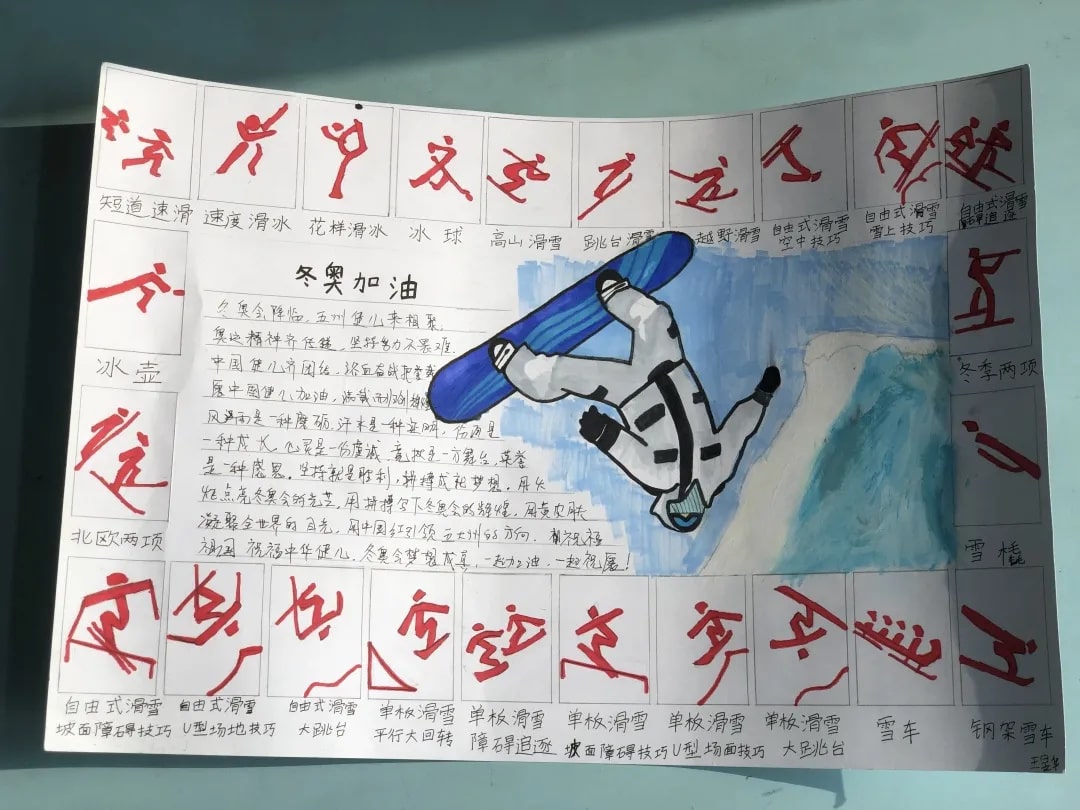 短道速滑 速度滑冰 花样滑冰 冰球 高山滑雪 跳台滑雪 越野滑雪 自由式滑雪 空中技巧 自由式滑雪 雪上技巧 自由式滑雪
冬奥加油
冬奥会降临,五州健儿来相聚,
奥运精神齐传递,坚持努力不畏难.
中国健儿齐团结,浴血奋战把金
愿中国健儿加油,
风雨是一种磨砺,汗水是一种
一种成长,飞雪是一份虔诚,竞技是一方舞台,荣誉
是一种感恩.坚持就是胜利,拼搏成就梦想,用火
炬点亮冬奥会的光芒,用拼搏勾下冬奥会的辉煌,用黄皮肤
凝聚全世界的目光,用中国红引领五大州的方向,祝福
祖国,祝福中华健儿,冬奥会梦想成真,一起加油,一起祝愿!
冰壶
北欧两项
冬季两项
雪橇
自由式滑雪 坡面障碍技巧
自由式滑雪 U型场地技巧
自由式滑雪 大跳台
单板滑雪 平行大回转
单板滑雪 障碍追逐
单板滑雪 坡面障碍技巧
单板滑雪 U型场面技巧
单板滑雪 大跳台
雪车
钢架雪车